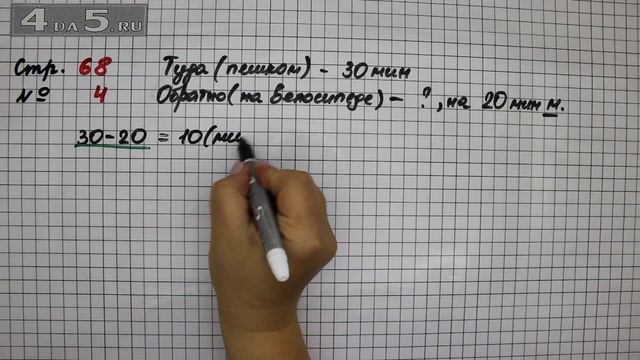 4DA5.RU
Стр. 68 Туда (пешком) - 30 мин
№ 4 Обратно (на велосипеде) - ?, на 20 мин м.
30-20 = 10 (ми